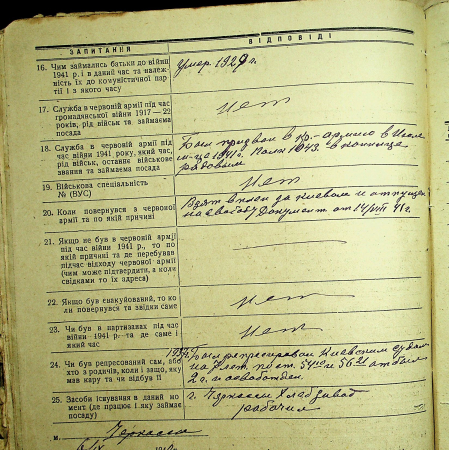 ЗАПИТАННЯ ВІДПОВІДІ
16. Чим займались батьки до війни
1941 р. і в даний час та належ-
ність їх до комуністичної пар-
тії і з якого часу
умер 1929 г.
17. Служба в червоній армії під час
громадянської війни 1917—22
років, рід військ та займаєма
посада
нет
18. Служба в червоній армії під
час війни 1941 року, який час,
рід військ, останнє військове
звання та займаєма посада
Был призван в кр. армию в Июле
м-це 1941 г.
рядовым
19. Військова спеціальність
№ (ВУС)
Нет
20. Коли повернувся з червоної
армії та по якій причині
Взят в плен за Киевом и отпущен
на свободу Документ от 14/VIII 41 г.
21. Якщо не був в червоній армії
під час війни 1941 р., то по
якій причині та де перебував
підчас відходу червоної армії
(чим може підтвердити, а коли
свідками то їх адреса)
22. Якщо був евакуйований, то ко
ли повернувся та звідки саме
Нет
23. Чи був в партизанах під час
війни 1941 р. та де саме і
який час
Нет
24. Чи був репресований сам, або
хто з родичів, коли і защо, яку
мав кару та чи відбув її
Был репрессирован Киевским судом
на 7 лет. по ст. 54 отбыл
2 г. и освобожден.
25. Засоби існування в даний мо-
мент (де працює і яку займає
посаду)
г. Черкассы Хлебзавод
рабочий
м. Черкассы